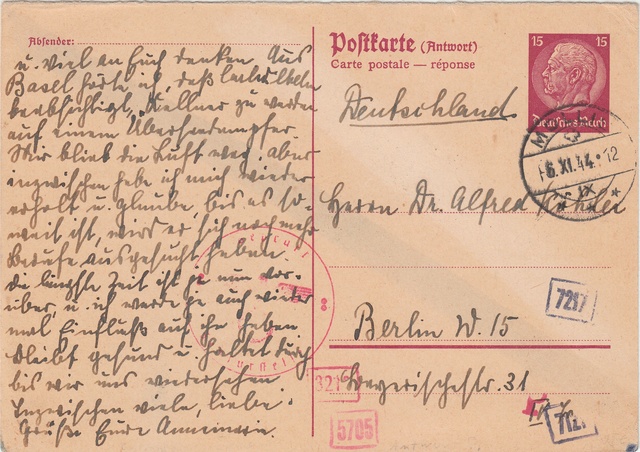 Absender:
u. viel an Euch denken. Aus
Basel hörte ich, daß
beabsichtigt, Kellner zu werden
auf einem Überseedampfer.
Mir blieb die Luft weg, aber
inzwischen habe ich mich wieder
erholt u. glaube, bis es so-
weit ist, wird er sich noch mehr
Berufe ausgesucht haben.
Die längste Zeit ist ja nun vor-
über, u. ich werde ja auch wieder
mal Einfluß auf ihn haben
bleibt gesund u. haltet durch
bis wir uns wiedersehen
Inzwischen viele, liebe
Grüße Eure Annemarie.
Postkarte (Antwort)
Carte postale — réponse
15 15
Deutsches Reich
Deutschland
6.XI.44.12
Herrn Dr. Alfred
7217
Berlin W. 15
321
31
5705
712